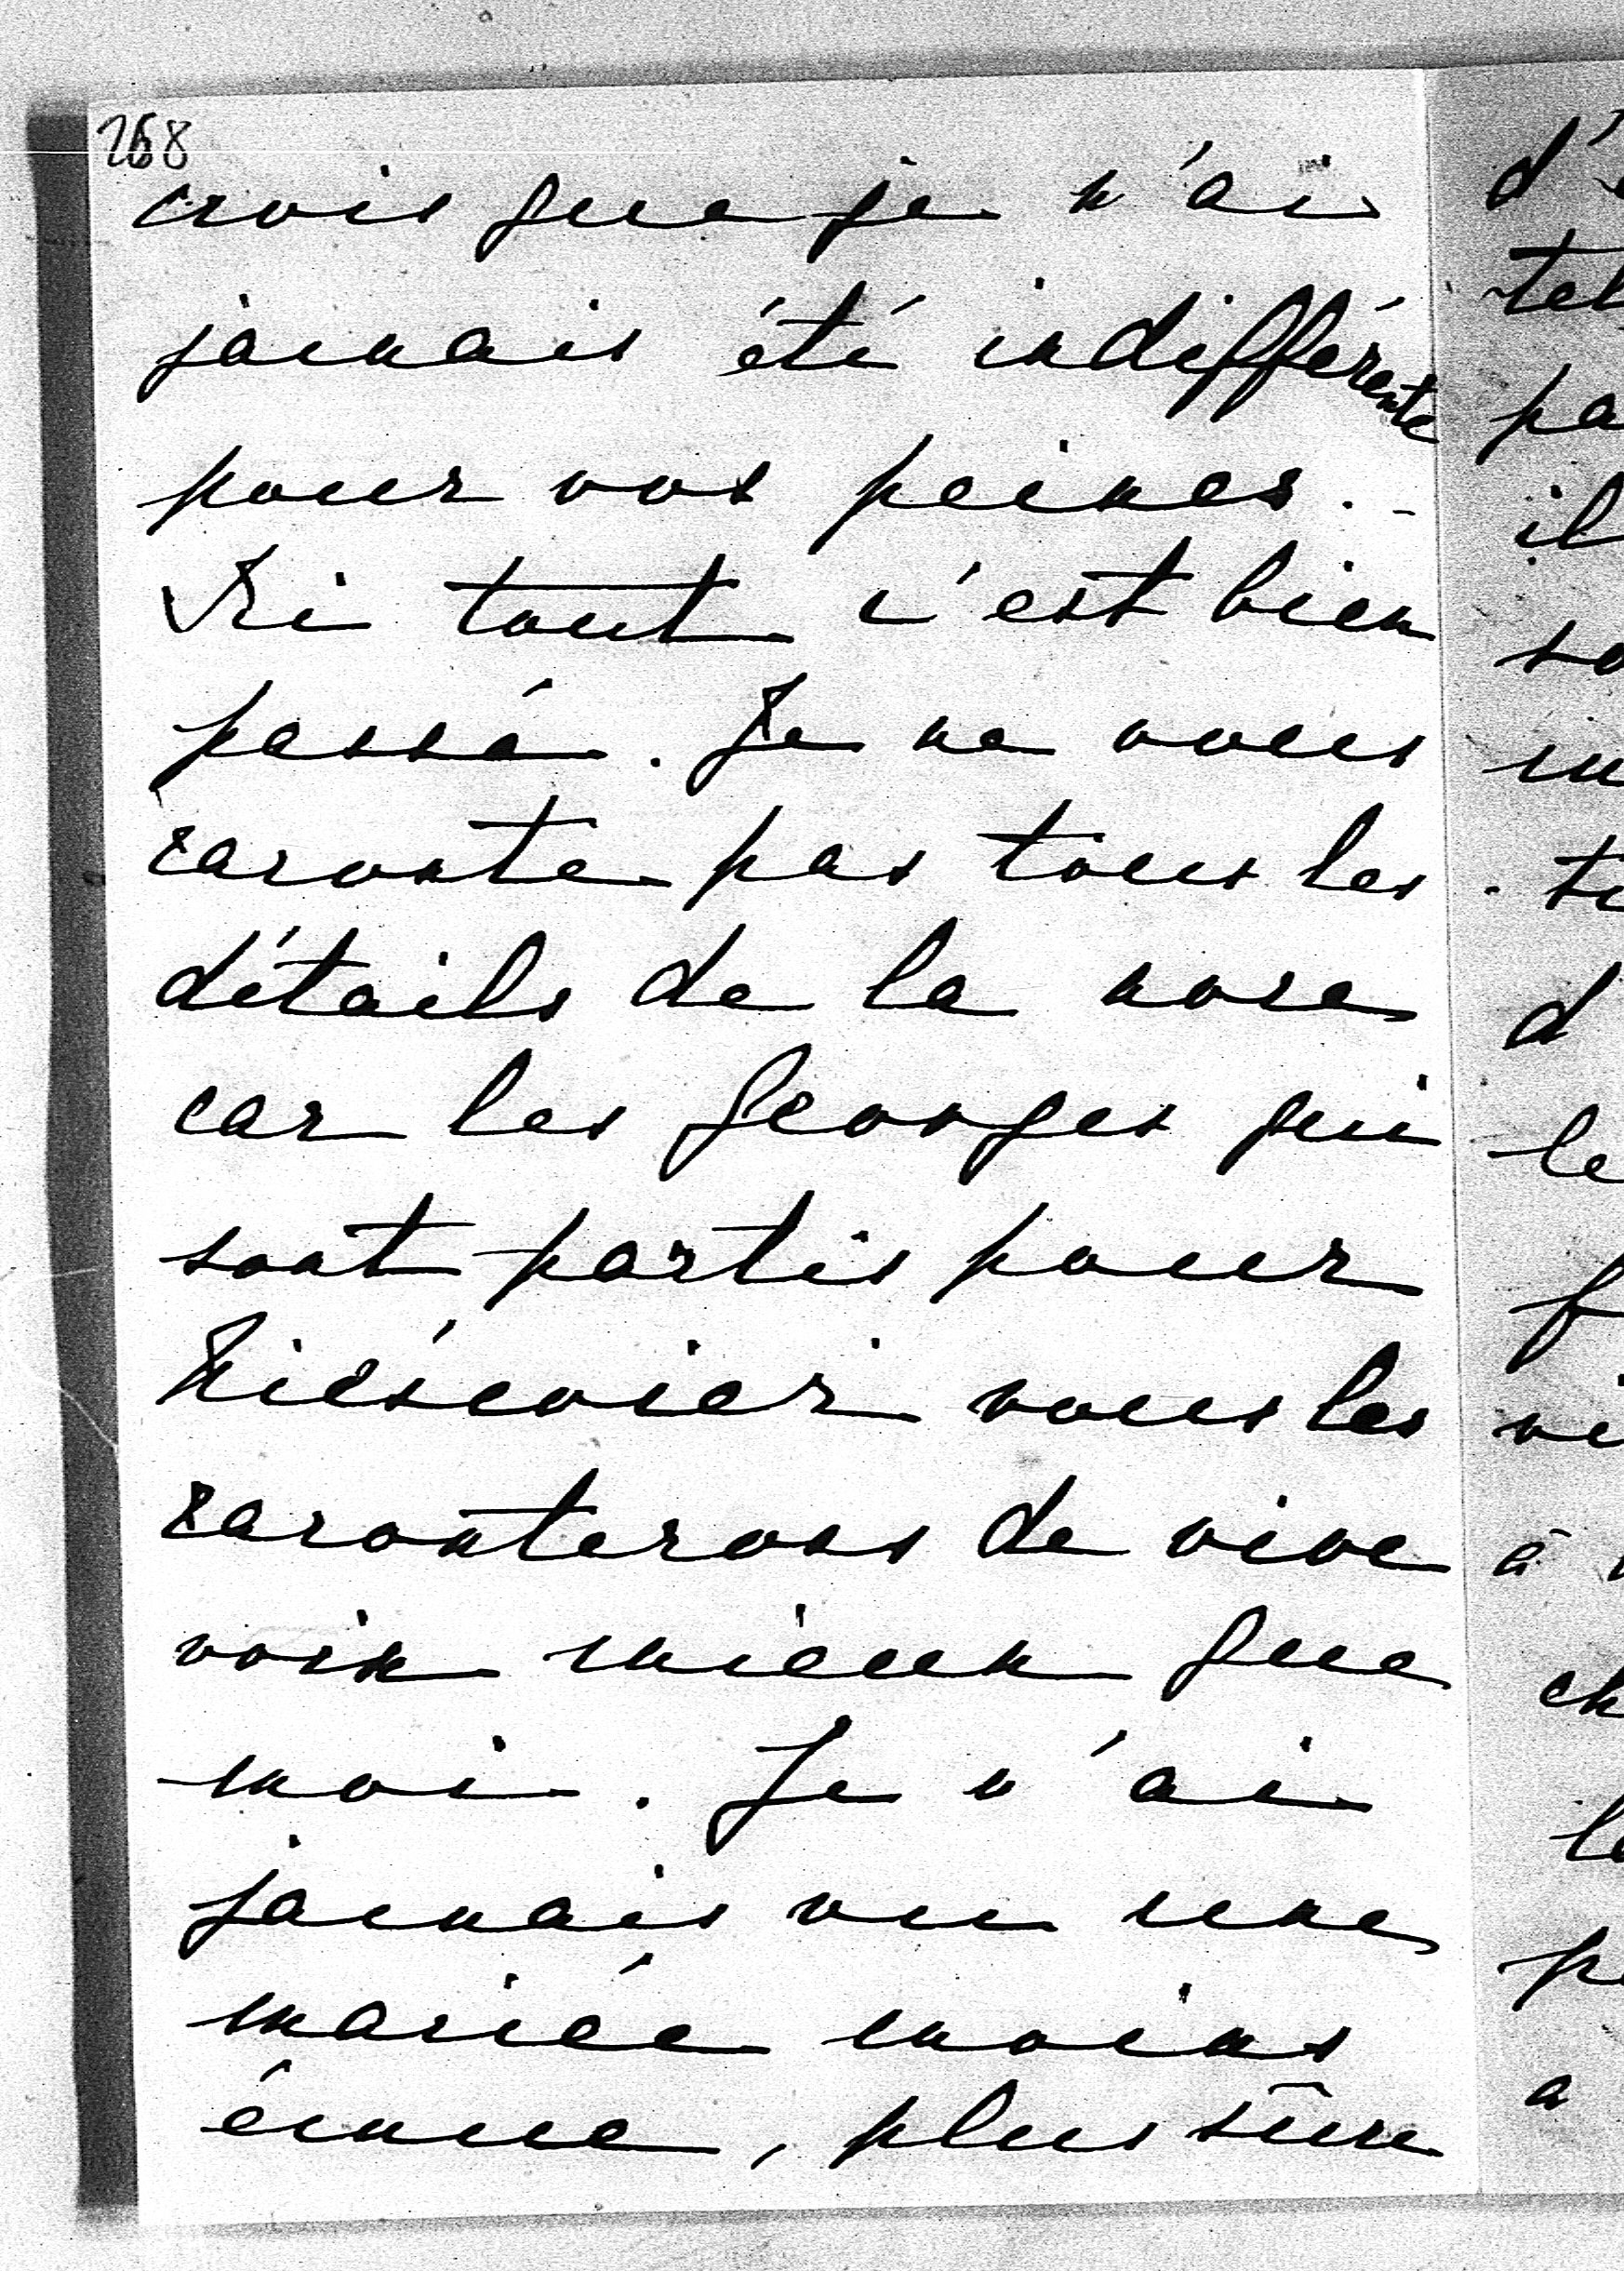 268
crois que je n'ai
jamais été indifférente
pour vos peines. -
Ici tout c'est bien
passé. Je ne vous
raconte pas tous les
détails de la noce
car les Georges qui
sont partis pour
vous les
raconterons de vive
voix mieux que
moi. Je n'ai
jamais vu une
mariée moins
émue, plus sûre
d'
tel
pa
il
so
d
le
f
vi
à
ch
p
a